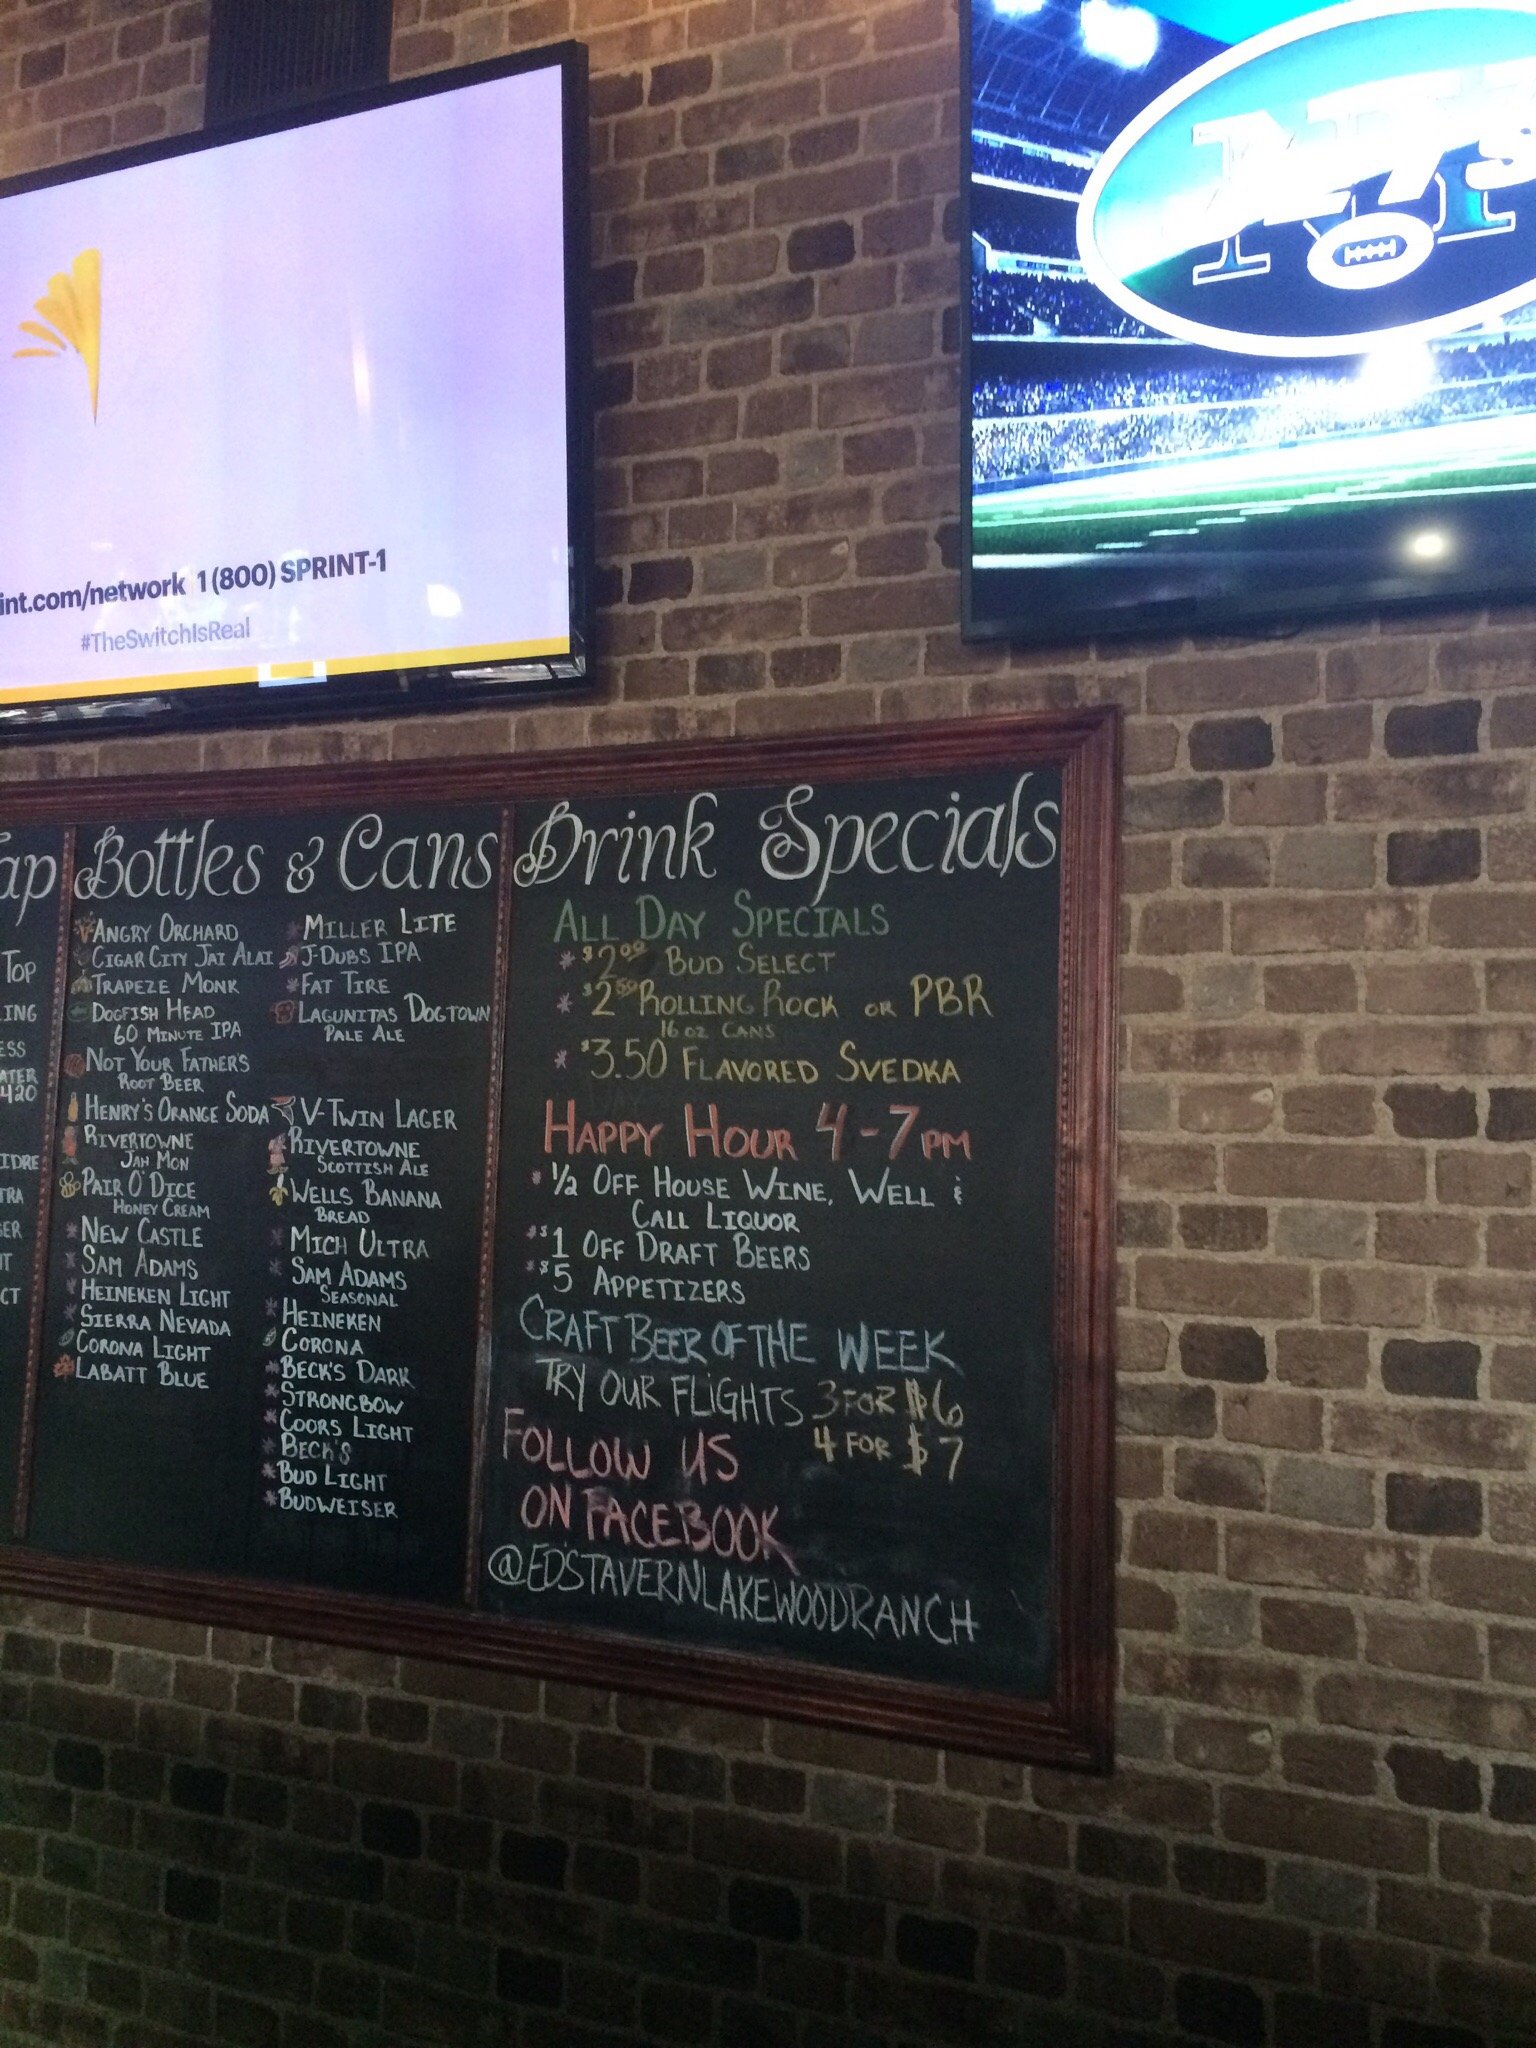 1 (800) SPRINT-1
#TheSwitchIsReal
NY
Bottles & Cans
ANGRY ORCHARD
CIGAR CITY JAI ALAI
TRAPEZE MONK
DOGFISH HEAD
60 MINUTE IPA
NOT YOUR FATHER'S
ROOT BEER
HENRY'S ORANGE SODA
RIVERTOWNE
JAH MON
PAIR O'DICE
HONEY CREAM
NEW CASTLE
SAM ADAMS
HEINEKEN LIGHT
SIERRA NEVADA
CORONA LIGHT
LABATT BLUE
MILLER LITE
J-DUBS IPA
FAT TIRE
LAGUNITAS DOGTOWN
PALE ALE
V-TWIN LAGER
RIVERTOWNE
SCOTTISH ALE
WELLS BANANA
BREAD
MICH ULTRA
SAM ADAMS
SEASONAL
HEINEKEN
CORONA
BECK'S DARK
STRONGBOW
COORS LIGHT
BECK'S
BUD LIGHT
BUDWEISER
Drink Specials
ALL DAY SPECIALS
* $2.00 BUD SELECT
* $2.50 ROLLING ROCK OR PBR
16 OZ CANS
* $3.50 FLAVORED SVEDKA
HAPPY HOUR 4-7 PM
* 1/2 OFF HOUSE WINE, WELL &
CALL LIQUOR
* $1 OFF DRAFT BEERS
* $5 APPETIZERS
CRAFT BEER OF THE WEEK
TRY OUR FLIGHTS 3 FOR $6
4 FOR $7
FOLLOW US
ON FACEBOOK
@ED'STAVERNLAKEWOODRANCH